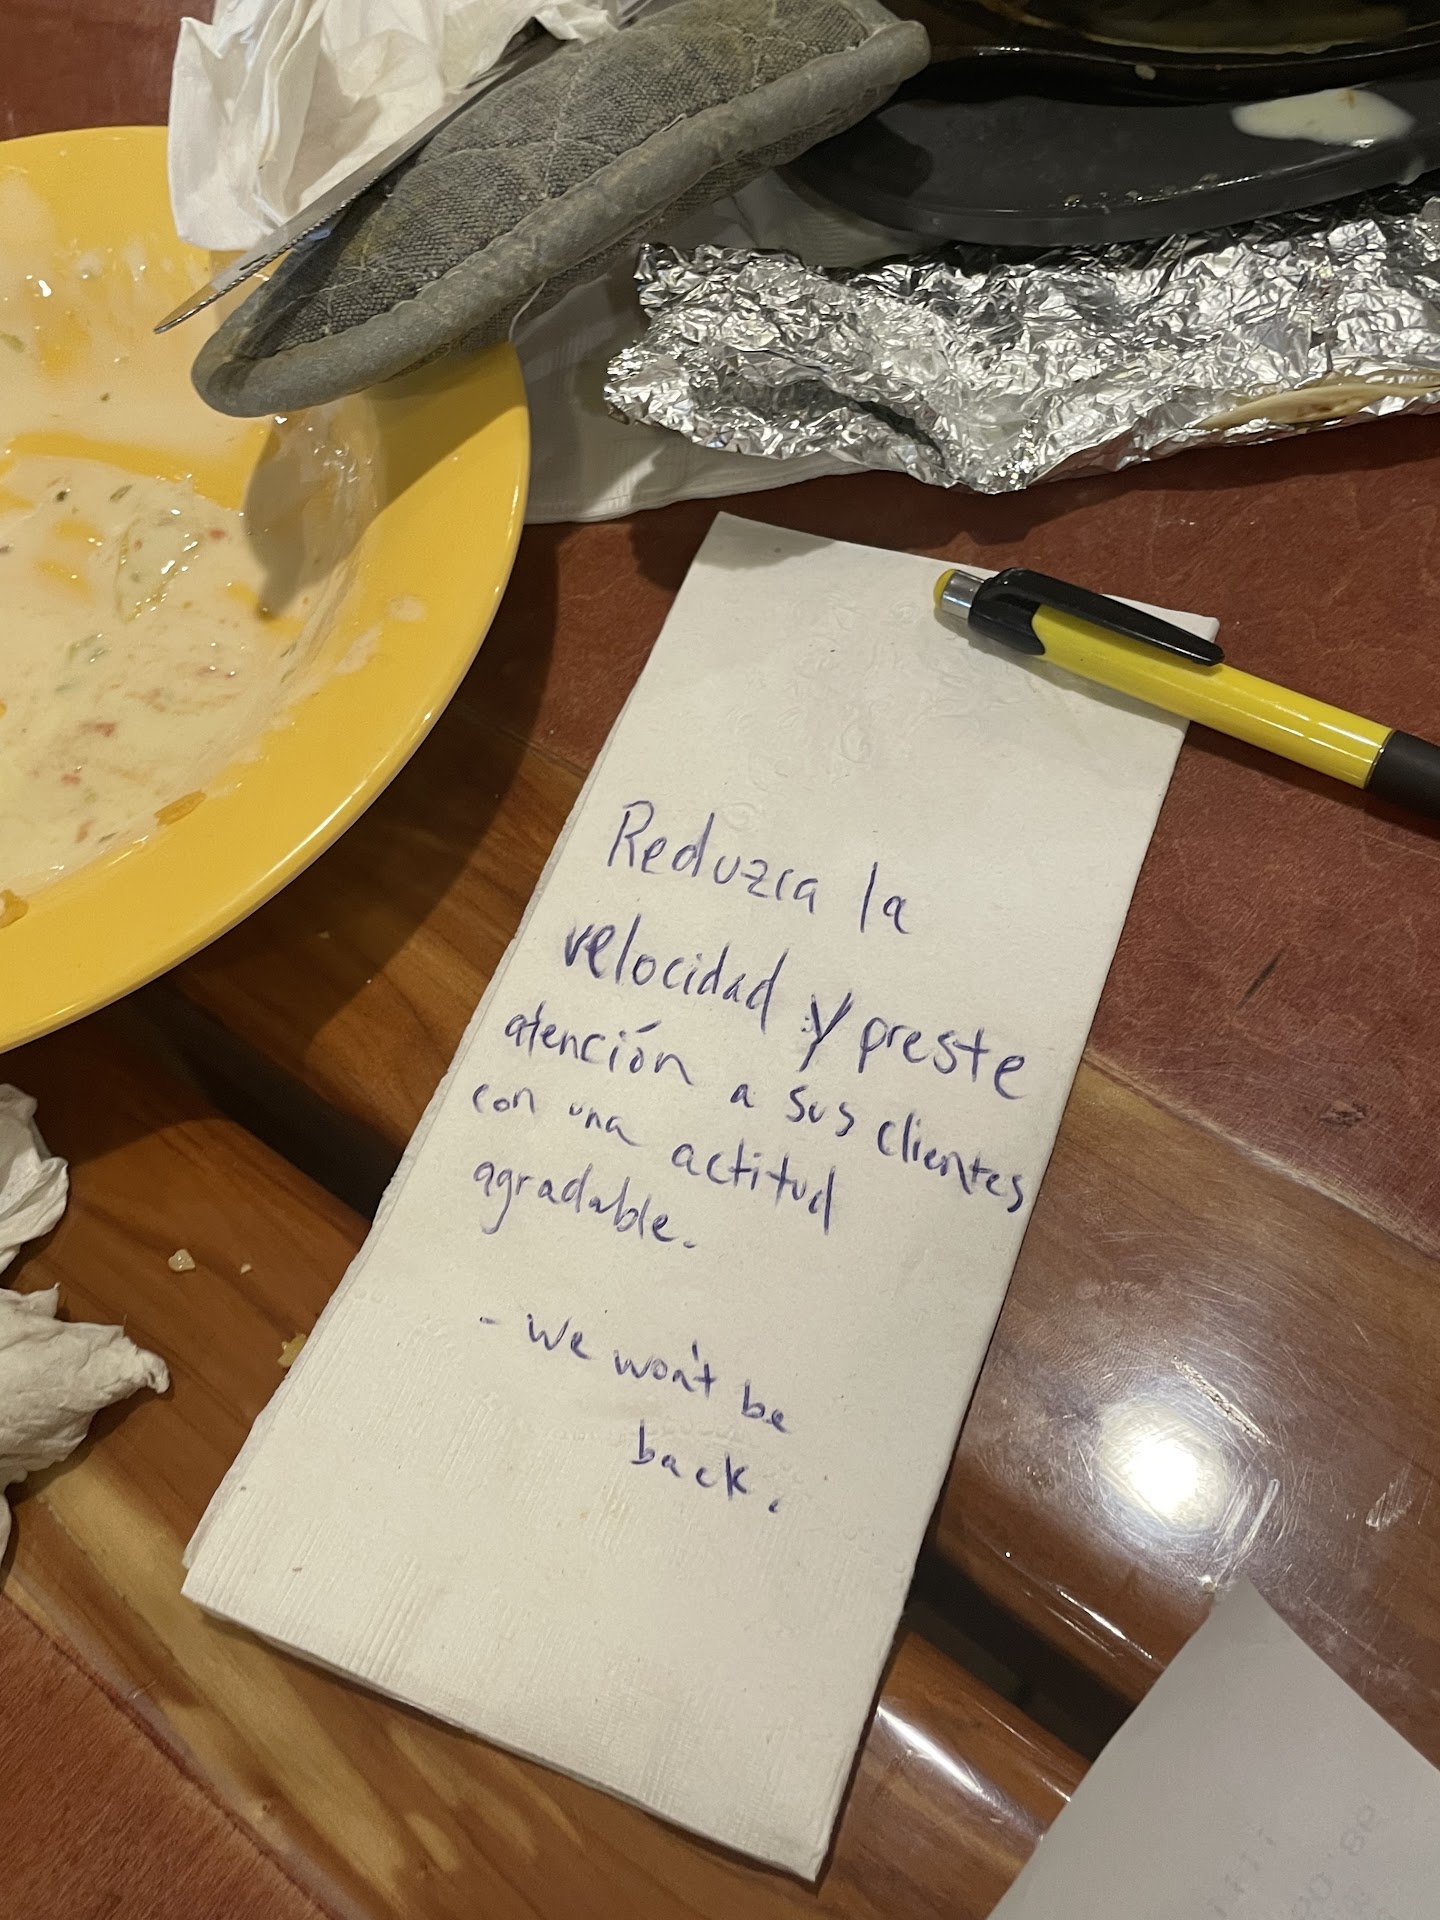 Reduzca la
velocidad y preste
atención a sus clientes
con una actitud
agradable.
- We won't be
back.